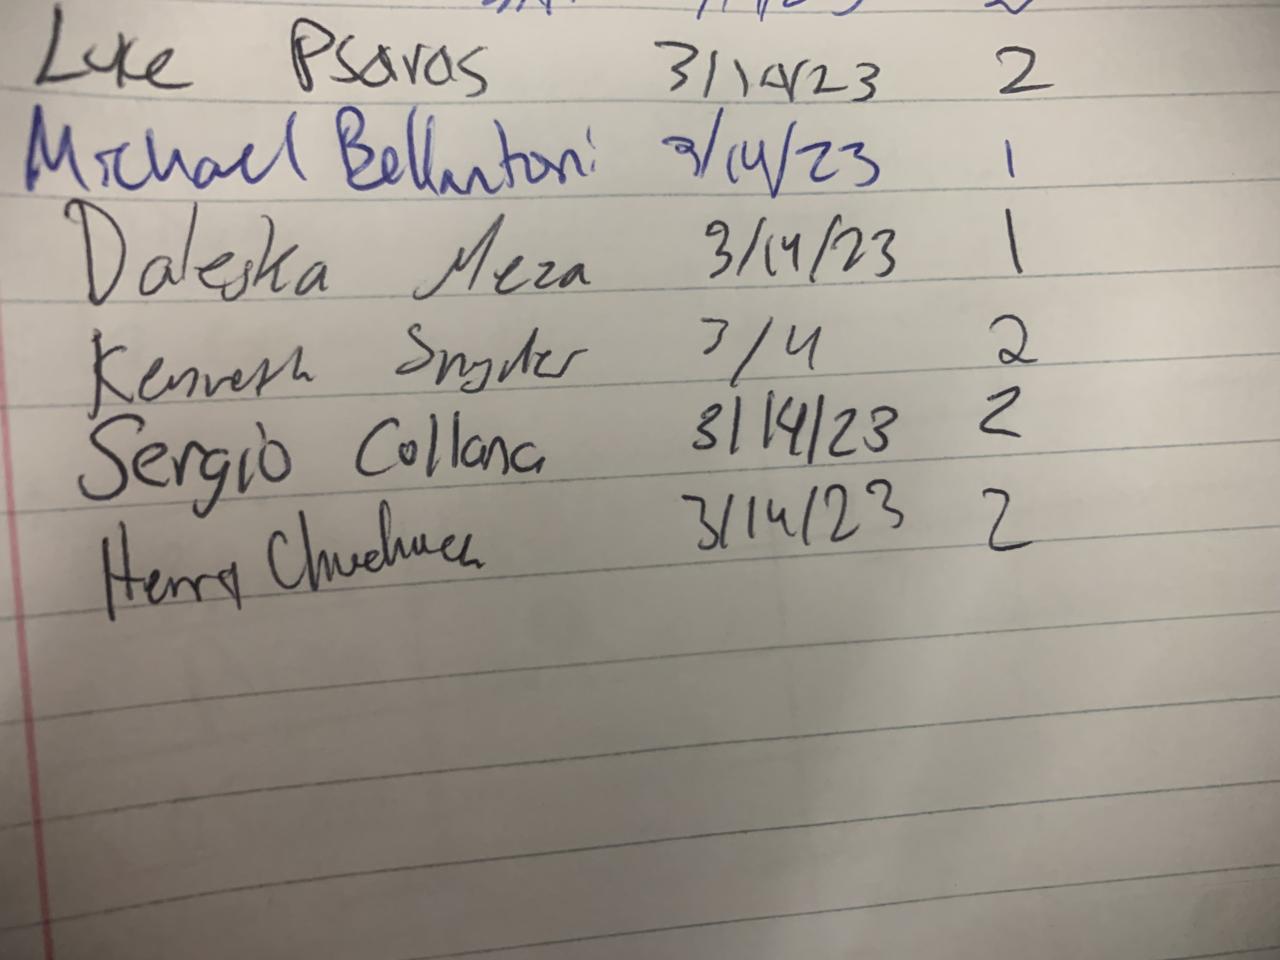 Luke Psaras 3/14/23 2
Michael Bellantoni 3/14/23 1
Daleska Meza 3/14/23 1
Kenneth Snyder 3/4 2
Sergio Collana 3/14/23 2
Henry 3/14/23 2